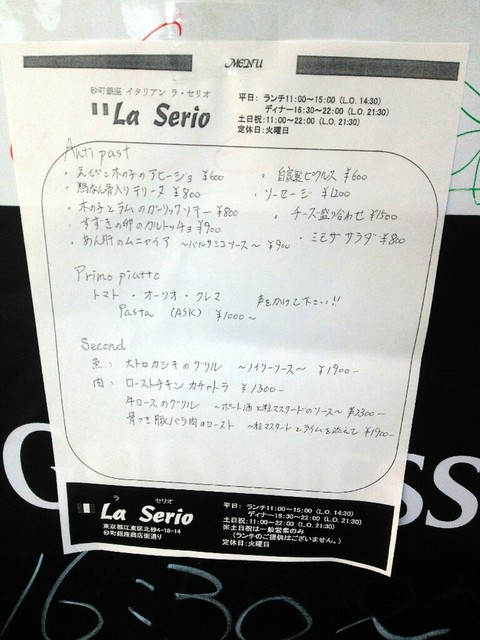 MENU
砂町銀座 イタリアン ラ・セリオ
La Serio
平日: ランチ11:00～15:00 (L.O. 14:30)
ディナー16:30～22:00 (L.O. 21:30)
土日祝:11:00～22:00 (L.O. 21:30)
定休日:火曜日
Antipast
・えんぺと木の子のアヒージョ ¥600
・鶏なん骨入りテリーヌ ¥800
・木の子とラムのガーリックソテー ¥800
・すずきの卵のカルトッチョ ¥900
・あん肝のムニャイア ～バルサミコソース～ ¥900
・自家製ピクルス ¥600
・ソーセージ ¥1200
・チーズ盛り合わせ ¥1500
・ミモザサラダ ¥800
Primo piatto
トマト・オーリオ・クレス 声をかけて下さい!!
Pasta (ASK) ¥1000～
Second
魚: 大トロカジキのグリル ～ノイリーソース～ ¥1900-
肉: ローストチキン カチャトラ ¥1300-
牛ロースのグリル ～ポート酒と粒マスタードのソース～ ¥2300-
骨つき豚バラ肉のロースト ～粒マスタードとライムを添えて ¥1900-
ラ セリオ
La Serio
東京都江東区北砂4-18-14
砂町銀座商店街通り
平日: ランチ11:00～15:00 (L.O. 14:30)
ディナー16:30～22:00 (L.O. 21:30)
土日祝:11:00～22:00 (L.O. 21:30)
※土日祝は一般営業のみ
(ランチのご提供はございません。)
定休日:火曜日
SS
16:30～